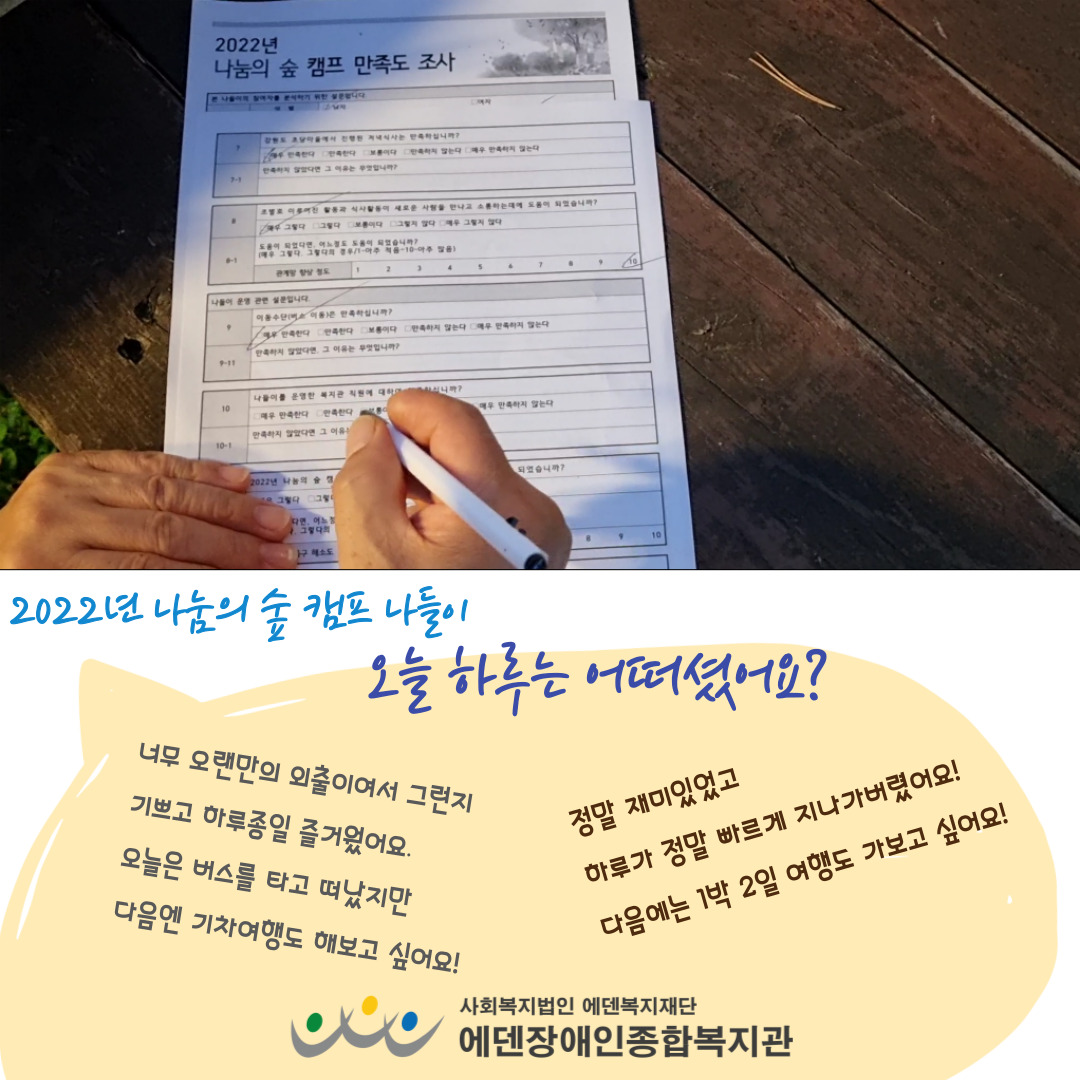 2022년
나눔의 숲 캠프 만족도 조사
본 나들이의 참여자를 분석하기 위한 설문입니다.
7 강원도 초당마을에서 진행된 저녁식사는 만족하십니까?
매우 만족한다 □만족한다 □보통이다 □만족하지 않는다 □매우 만족하지 않는다
7-1 만족하지 않았다면 그 이유는 무엇입니까?
8 조별로 이루어진 활동과 식사활동이 새로운 사람을 만나고 소통하는데에 도움이 되었습니까?
매우 그렇다 □그렇다 □보통이다 □그렇지 않다 □매우 그렇지 않다
8-1 도움이 되었다면, 어느정도 도움이 되었습니까?
(매우 그렇다, 그렇다의 경우/1-아주 적음~10-아주 많음)
관계망 향상 정도 1 2 3 4 5 6 7 8 9 10
나들이 운영 관련 설문입니다.
9 이동수단(버스 이동)은 만족하십니까?
매우 만족한다 □만족한다 □보통이다 □만족하지 않는다 □매우 만족하지 않는다
9-11 만족하지 않았다면, 그 이유는 무엇입니까?
10 나들이를 운영한 복지관 직원에 대하여
□매우 만족한다 □만족한다 매우 만족하지 않는다
10-1 만족하지 않았다면 그
2022년 나눔의 숲 되었습니까?
그렇다 □그렇다
8 9 10
2022년 나눔의 숲 캠프 나들이
오늘 하루는 어떠셨어요?
너무 오랜만의 외출이여서 그런지
기쁘고 하루종일 즐거웠어요.
오늘은 버스를 타고 떠났지만
다음엔 기차여행도 해보고 싶어요!
정말 재미있었고
하루가 정말 빠르게 지나가버렸어요!
다음에는 1박 2일 여행도 가보고 싶어요!
사회복지법인 에덴복지재단
에덴장애인종합복지관